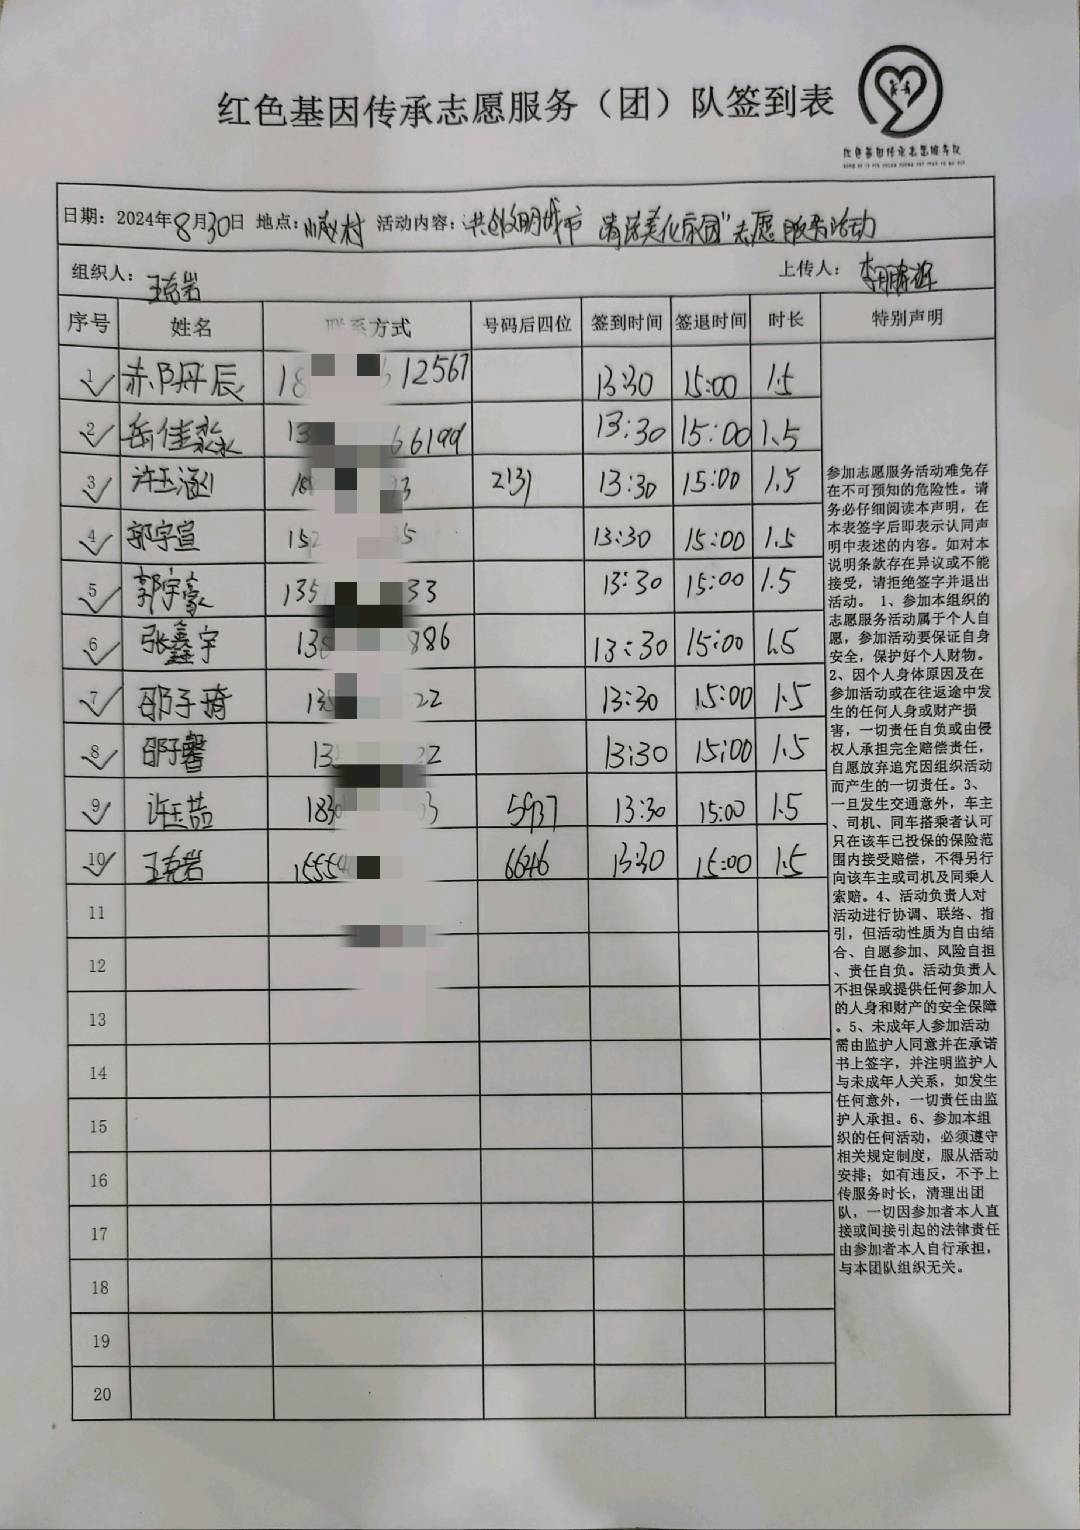 红色基因传承志愿服务（团）队签到表
红色基因传承志愿服务队
日期：2024年8月30日 地点：小赵村 活动内容：“共创文明城市 清洁美化家园”志愿服务活动
组织人：王克岩 上传人：李鹏辉
序号 姓名 联系方式 号码后四位 签到时间 签退时间 时长 特别声明
1 赤阝丹辰 18 612567 13:30 15:00 1.5
2 岳佳淼 13 66199 13:30 15:00 1.5
3 许玉涵 18 3 2131 13:30 15:00 1.5
4 郭宇宣 152 35 13:30 15:00 1.5
5 郭宇豪 135 33 13:30 15:00 1.5
6 张鑫宇 138 886 13:30 15:00 1.5
7 邵子琦 135 22 13:30 15:00 1.5
8 邵子馨 13 22 13:30 15:00 1.5
9 许玉喆 183 3 5937 13:30 15:00 1.5
10 王克岩 1555 6646 13:30 15:00 1.5
11
12
13
14
15
16
17
18
19
20
参加志愿服务活动难免存
在不可预知的危险性。请
务必仔细阅读本声明，在
本表签字后即表示认同声
明中表述的内容。如对本
说明条款存在异议或不能
接受，请拒绝签字并退出
活动。 1、参加本组织的
志愿服务活动属于个人自
愿，参加活动要保证自身
安全，保护好个人财物。
2、因个人身体原因及在
参加活动或在往返途中发
生的任何人身或财产损
害，一切责任自负或由侵
权人承担完全赔偿责任，
自愿放弃追究因组织活动
而产生的一切责任。3、
一旦发生交通意外，车主
、司机、同车搭乘者认可
只在该车已投保的保险范
围内接受赔偿，不得另行
向该车主或司机及同乘人
索赔。4、活动负责人对
活动进行协调、联络、指
引，但活动性质为自由结
合、自愿参加、风险自担
、责任自负。活动负责人
不担保或提供任何参加人
的人身和财产的安全保障
。5、未成年人参加活动
需由监护人同意并在承诺
书上签字，并注明监护人
与未成年人关系，如发生
任何意外，一切责任由监
护人承担。6、参加本组
织的任何活动，必须遵守
相关规定制度，服从活动
安排；如有违反，不予上
传服务时长，清理出团
队，一切因参加者本人直
接或间接引起的法律责任
由参加者本人自行承担，
与本团队组织无关。